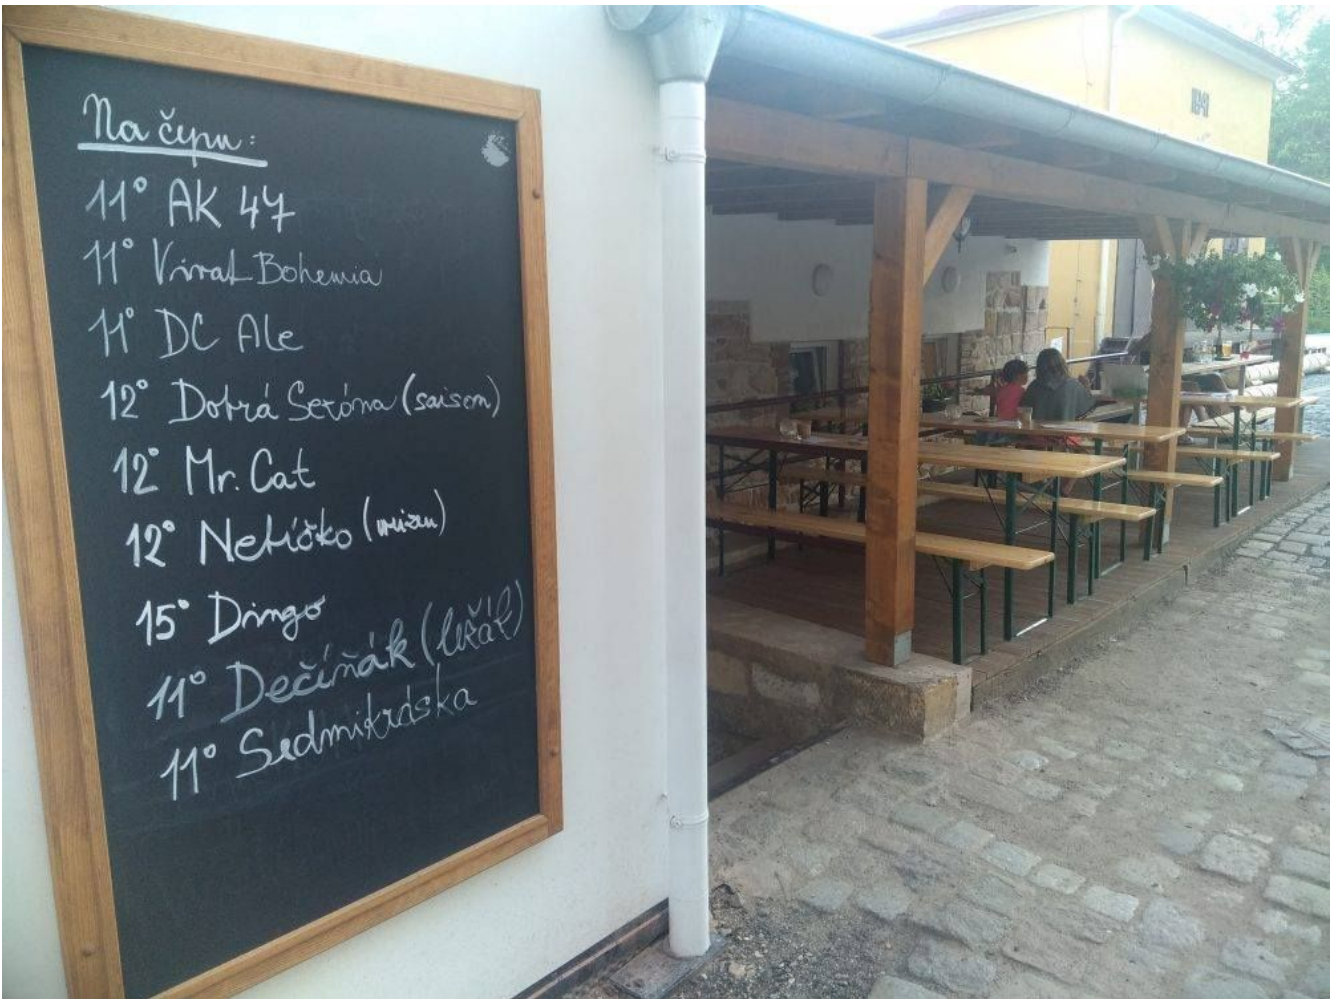 Na čepu:
11° AK 47
11° Vivat Bohemia
11° DC Ale
12° Dobrá Sezóna (saison)
12° Mr. Cat
12° Nebíčko (weizen)
15° Dingo
11° Děčíňák (ležák)
11° Sedmikráska